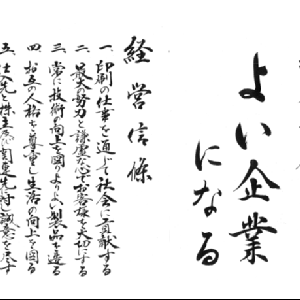 よい企業
になる
経営信條
一 印刷の仕事を通じて社会に貢献する
二 最大の努力と謙虚な心でお客様を大切にする
三 常に技術向上を図りよりよい製品を造る
四 お互の人格を尊重し生活の向上を図る
五 仕入先と株主及関連先に対し誠意を尽す